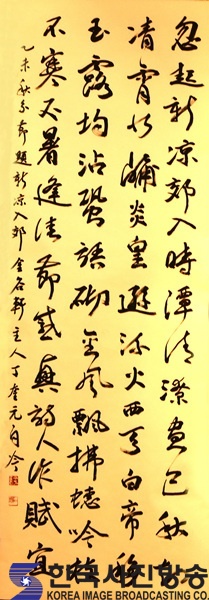 忽起新凉郊入時潭清潦盡已秋知
霄炎皇遯流火西天白帝移
玉露均沾蛩語砌金風飄拂蟋吟
不寒不暑逢佳節感興詩人作賦宜
乙未秋分節題新凉入郊 金石軒主人丁奎元自吟
한국사진방송
KOREA IMAGE BROADCASTING CO.